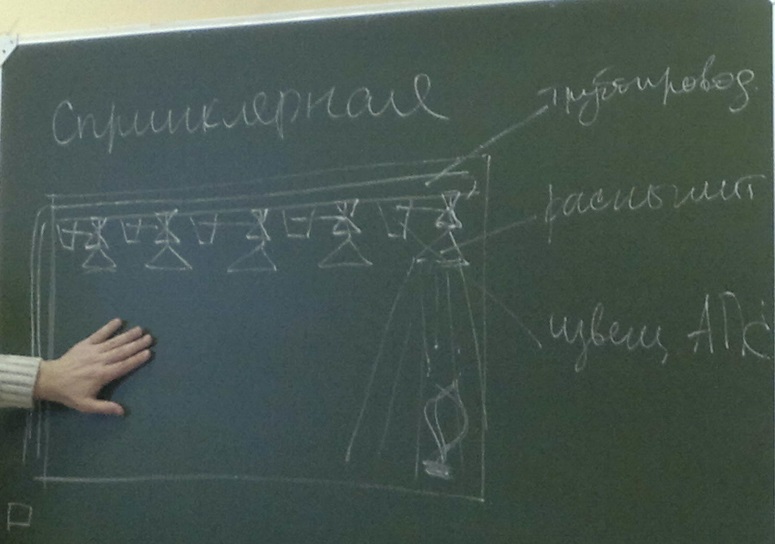 Спринклерная
трубопровод
распылит
извещ АПС